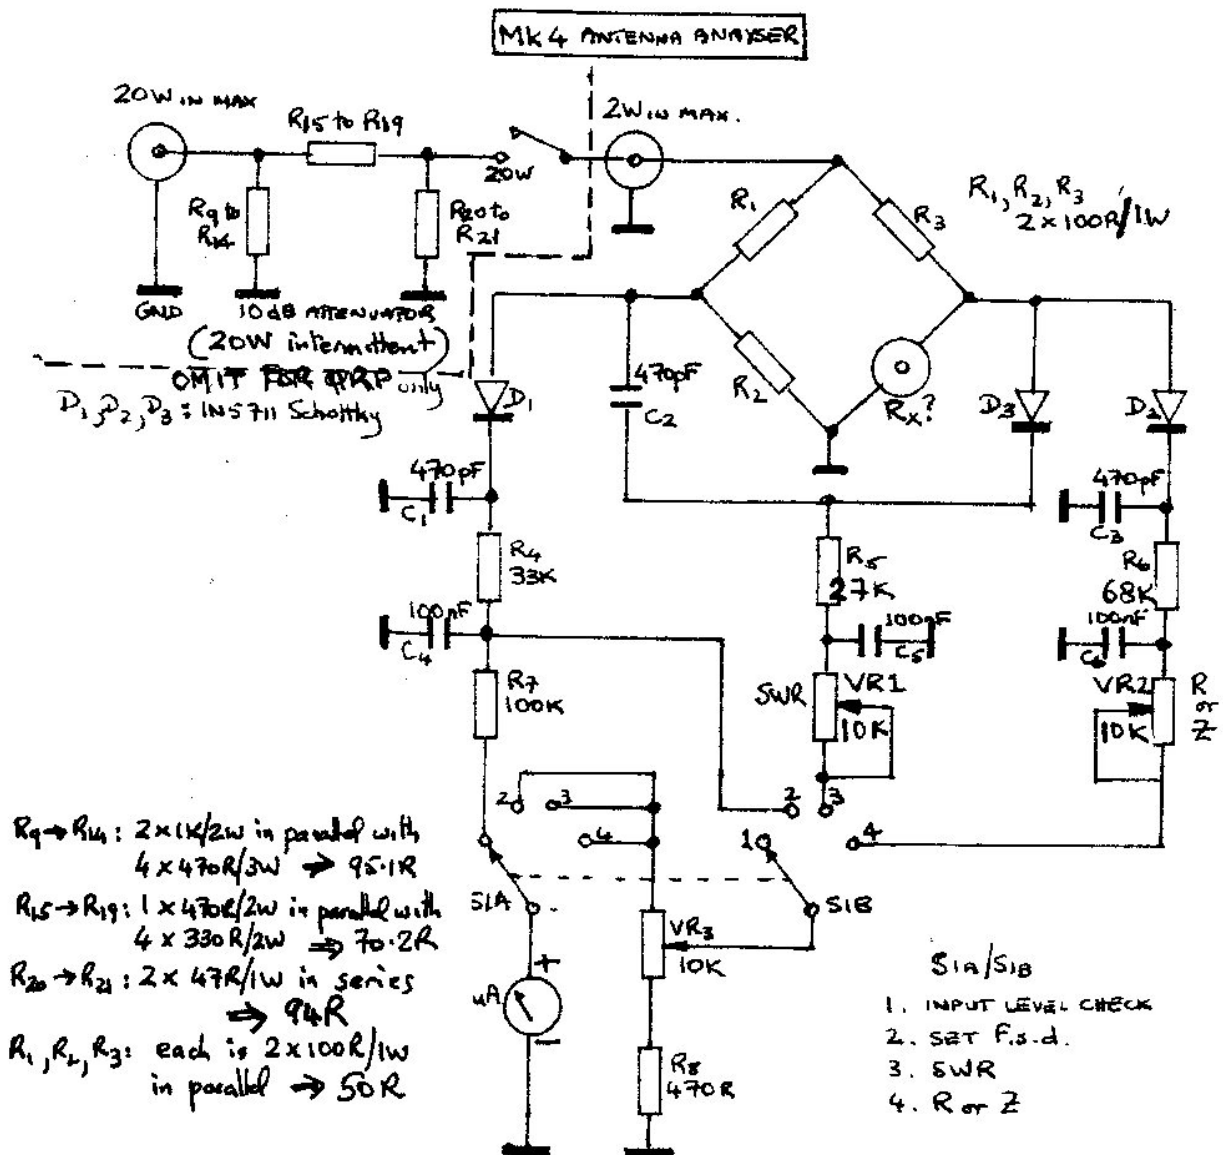 MK4 ANTENNA ANAYSER
20W IN MAX
R15 to R19
2W IN MAX.
20W
R9 to
R14
R20 to
R21
R1
R3
R1, R2, R3
2 x 100R/1W
GND
10dB ATTENUATOR
(20W intermittent)
OMIT FOR QRP only
D1, D2, D3 : IN5711 Schottky
D1
470pF
C2
R2
Rx?
D3
D2
470pF
C1
470pF
C3
R4
33K
R5
27K
R6
68K
100nF
C4
100nF
C5
100nF
C6
R7
100K
SWR
VR1
10K
VR2
10K
R
or
Z
2
3
4
2
3
1
4
R9→R14 : 2 x 1K/2W in parallel with
4 x 470R/3W → 95.1R
R15→R19 : 1 x 470R/2W in parallel with
4 x 330R/2W ⇒ 70.2R
R20→R21 : 2 x 47R/1W in series
⇒ 94R
R1, R2, R3 : each is 2 x 100R/1W
in parallel ⇒ 50R
S1A
S1B
VR3
10K
+
uA
-
R8
470R
S1A/S1B
1. INPUT LEVEL CHECK
2. SET F.s.d.
3. SWR
4. R or Z